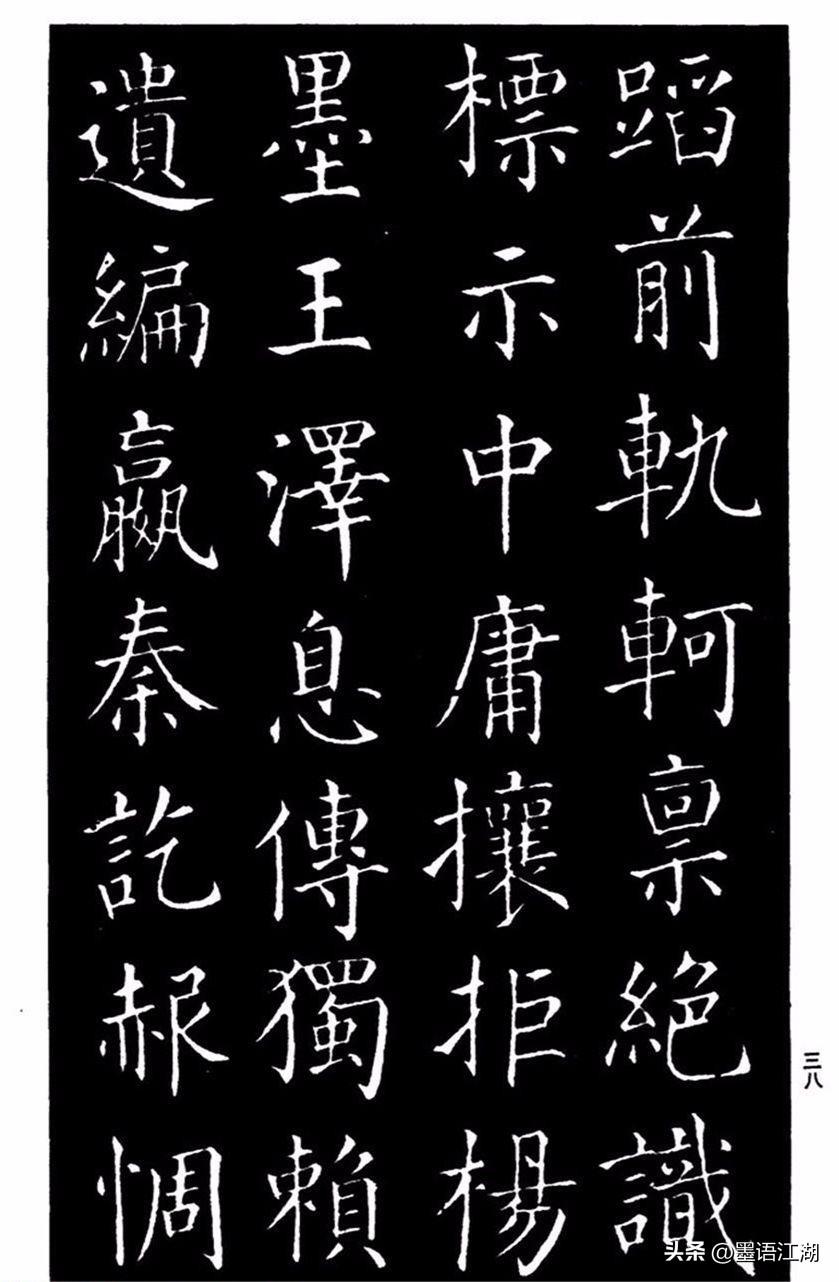 蹈前軌軻禀絶識
標示中庸攘拒楊
墨王澤息傳獨賴
遺編嬴秦訖赧惆
三八
头条 @墨语江湖